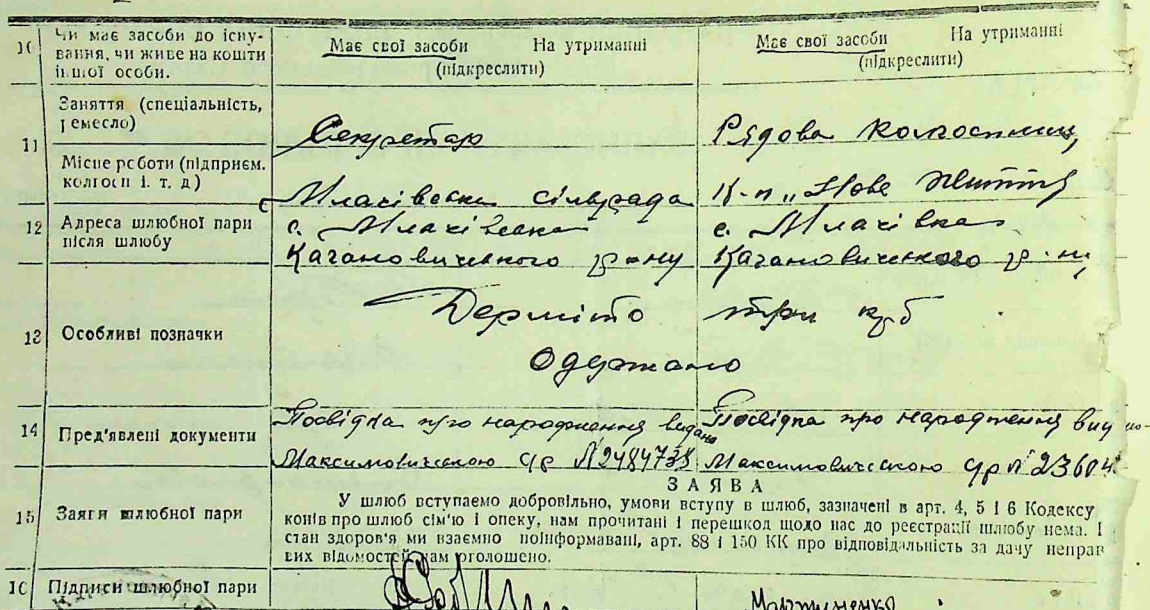 10 Чи має засоби до існу-
вання, чи живе на кошти
іншої особи.
Має свої засоби На утриманні
(підкреслити)
Має свої засоби На утриманні
(підкреслити)
11 Заняття (спеціальність,
ремесло)
Секретар
Рядова колгоспниц
Місце роботи (підприєм.
колгосп і. т. д)
сільрада
К-п „Нове життя
12 Адреса шлюбної пари
після шлюбу
с.
Кагановичського р-ну
с.
Кагановичського р-ну
13 Особливі позначки
три крб
Одержано
14 Пред'явлені документи
Посвідка про народження видано
Максимовичською с/р №
Посвідка про народження вид
Максимовичською с/р № 23604
ЗАЯВА
15 Заяги шлюбної пари
У шлюб вступаемо добровільно, умови вступу в шлюб, зазначені в арт. 4, 5 і 6 Кодексу
конів про шлюб сім'ю і опеку, нам прочитані і перешкод щодо нас до реєстрації шлюбу нема. І
стан здоров'я ми взаємно поінформавані, арт. 88 і 150 КК про відповідальність за дачу неправ
вих відомостей нам оголошено.
16 Підписи шлюбної пари